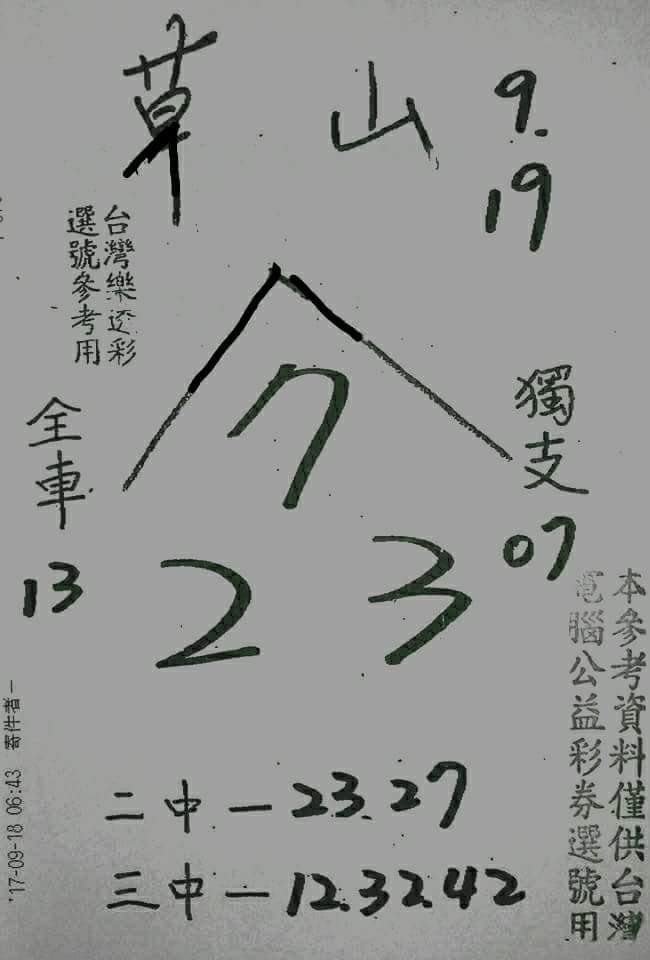 草山 9.
19
台灣樂透彩
選號參考用
全車
13
獨支
07
7
2 3
二中－23.27
三中－12.32.42
本參考資料僅供台灣
電腦公益彩券選號用
'17-09-18 06:43 寄件者－